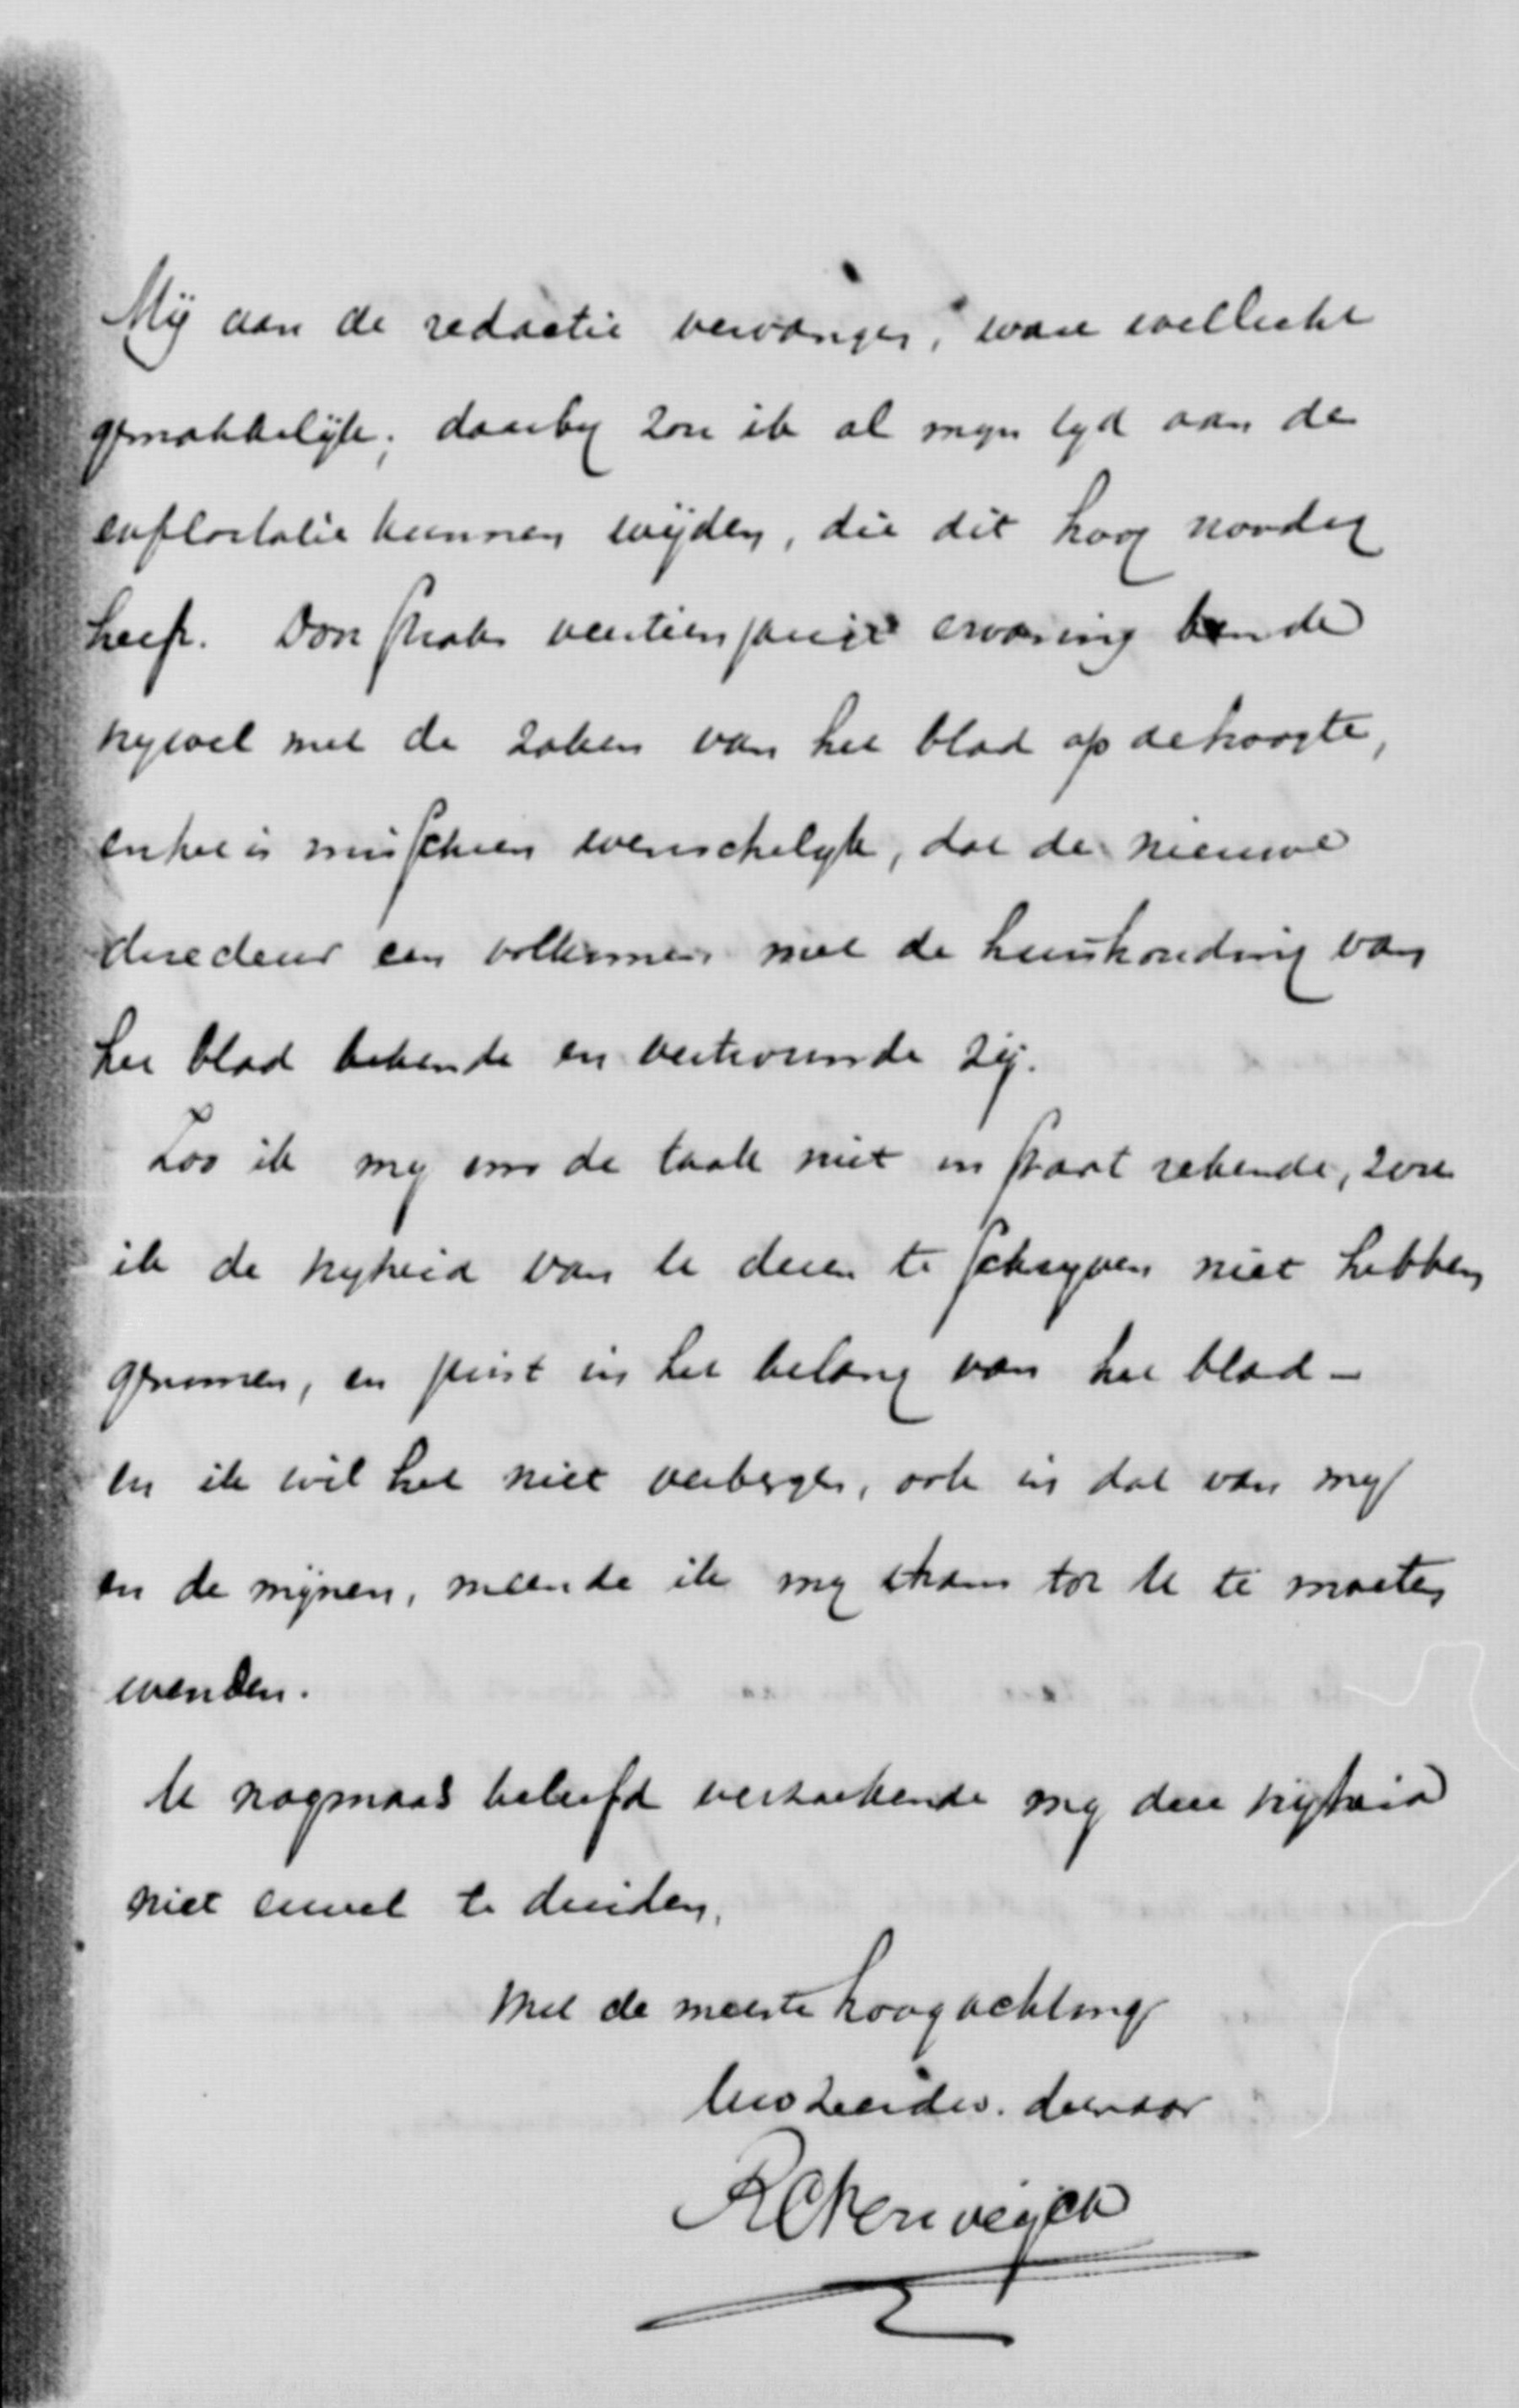 Mij aan de redactie vervangen, ware wellicht
gemakkelijk; daarby zou ik al myn tyd aan de
exploitatie kunnen wijden, die dit hoog noodig
heeft. Door straks veertienjarige ervaring ben de
hywel met de zaken van het blad op de hoogte,
en het is misschien wenschelyk, dat de nieuwe
directeur een volkomen met de huishouding van
het blad bekende en vertrouwde zij.
Zoo ik my om de taak niet in staat rekende, zou
ik de vryheid van U dezen te schryven niet hebben
genomen, en juist in het belang van het blad –
en ik wil het niet verbergen, ook in dat van my
en de mijnen, meende ik my thans tot U te moeten
wenden.
U nogmaals beleefd verzoekende my deze vryheid
niet euvel te duiden,
Met de meeste hoogachting
Uw dienaar